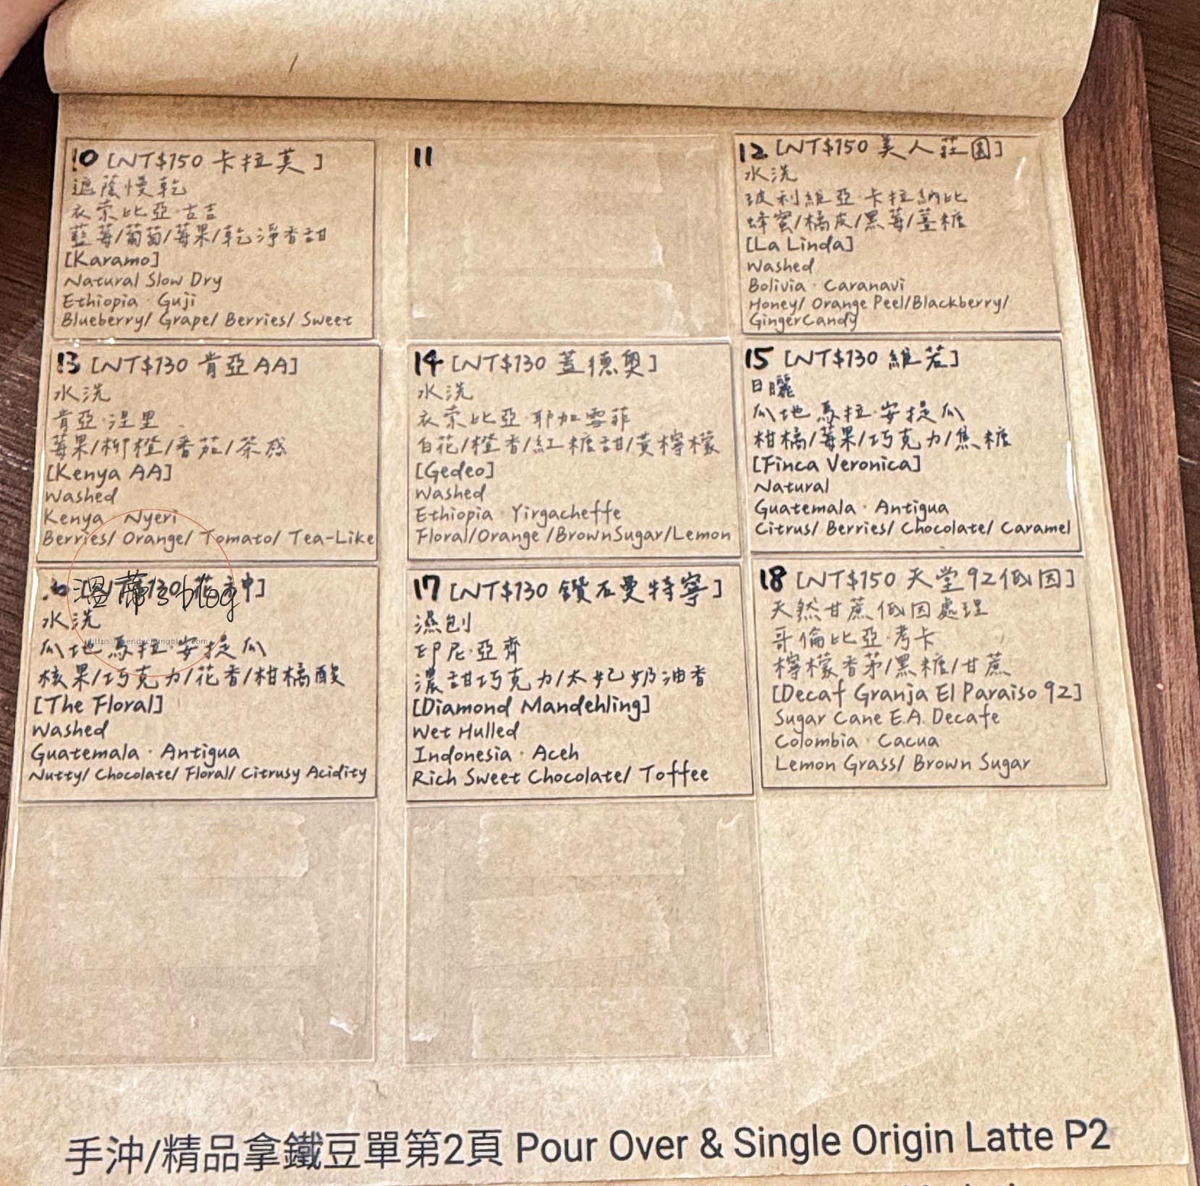 10 [NT$150 卡拉莫]
遮蔭慢乾
衣索比亞·古吉
藍莓/葡萄/莓果/乾淨香甜
[Karamo]
Natural Slow Dry
Ethiopia · Guji
Blueberry/ Grape/ Berries/ Sweet
11
12 [NT$150 美人莊園]
水洗
玻利維亞·卡拉納比
蜂蜜/橘皮/黑莓/薑糖
[La Linda]
Washed
Bolivia · Caranavi
Honey/ Orange Peel/Blackberry/
GingerCandy
13 [NT$130 肯亞AA]
水洗
肯亞·涅里
莓果/柳橙/番茄/茶感
[Kenya AA]
Washed
Kenya · Nyeri
Berries/ Orange/ Tomato/ Tea-Like
14 [NT$130 蓋德奧]
水洗
衣索比亞·耶加雪菲
白花/橙香/紅糖甜/黃檸檬
[Gedeo]
Washed
Ethiopia · Yirgacheffe
Floral/Orange/BrownSugar/Lemon
15 [NT$130 維若]
日曬
瓜地馬拉·安提瓜
柑橘/莓果/巧克力/焦糖
[Finca Veronica]
Natural
Guatemala · Antigua
Citrus/ Berries/ Chocolate/ Caramel
[NT$130 花神]
溫蒂's blog
水洗
瓜地馬拉·安提瓜
核果/巧克力/花香/柑橘酸
[The Floral]
Washed
Guatemala · Antigua
Nutty/ Chocolate/ Floral/ Citrusy Acidity
17 [NT$130 鑽石曼特寧]
濕刨
印尼·亞齊
濃甜巧克力/太妃奶油香
[Diamond Mandehling]
Wet Hulled
Indonesia · Aceh
Rich Sweet Chocolate/ Toffee
18 [NT$150 天堂92低因]
天然甘蔗低因處理
哥倫比亞·考卡
檸檬香茅/黑糖/甘蔗
[Decaf Granja El Paraiso 92]
Sugar Cane E.A. Decafe
Colombia · Cacua
Lemon Grass/ Brown Sugar
手沖/精品拿鐵豆單第2頁 Pour Over & Single Origin Latte P2